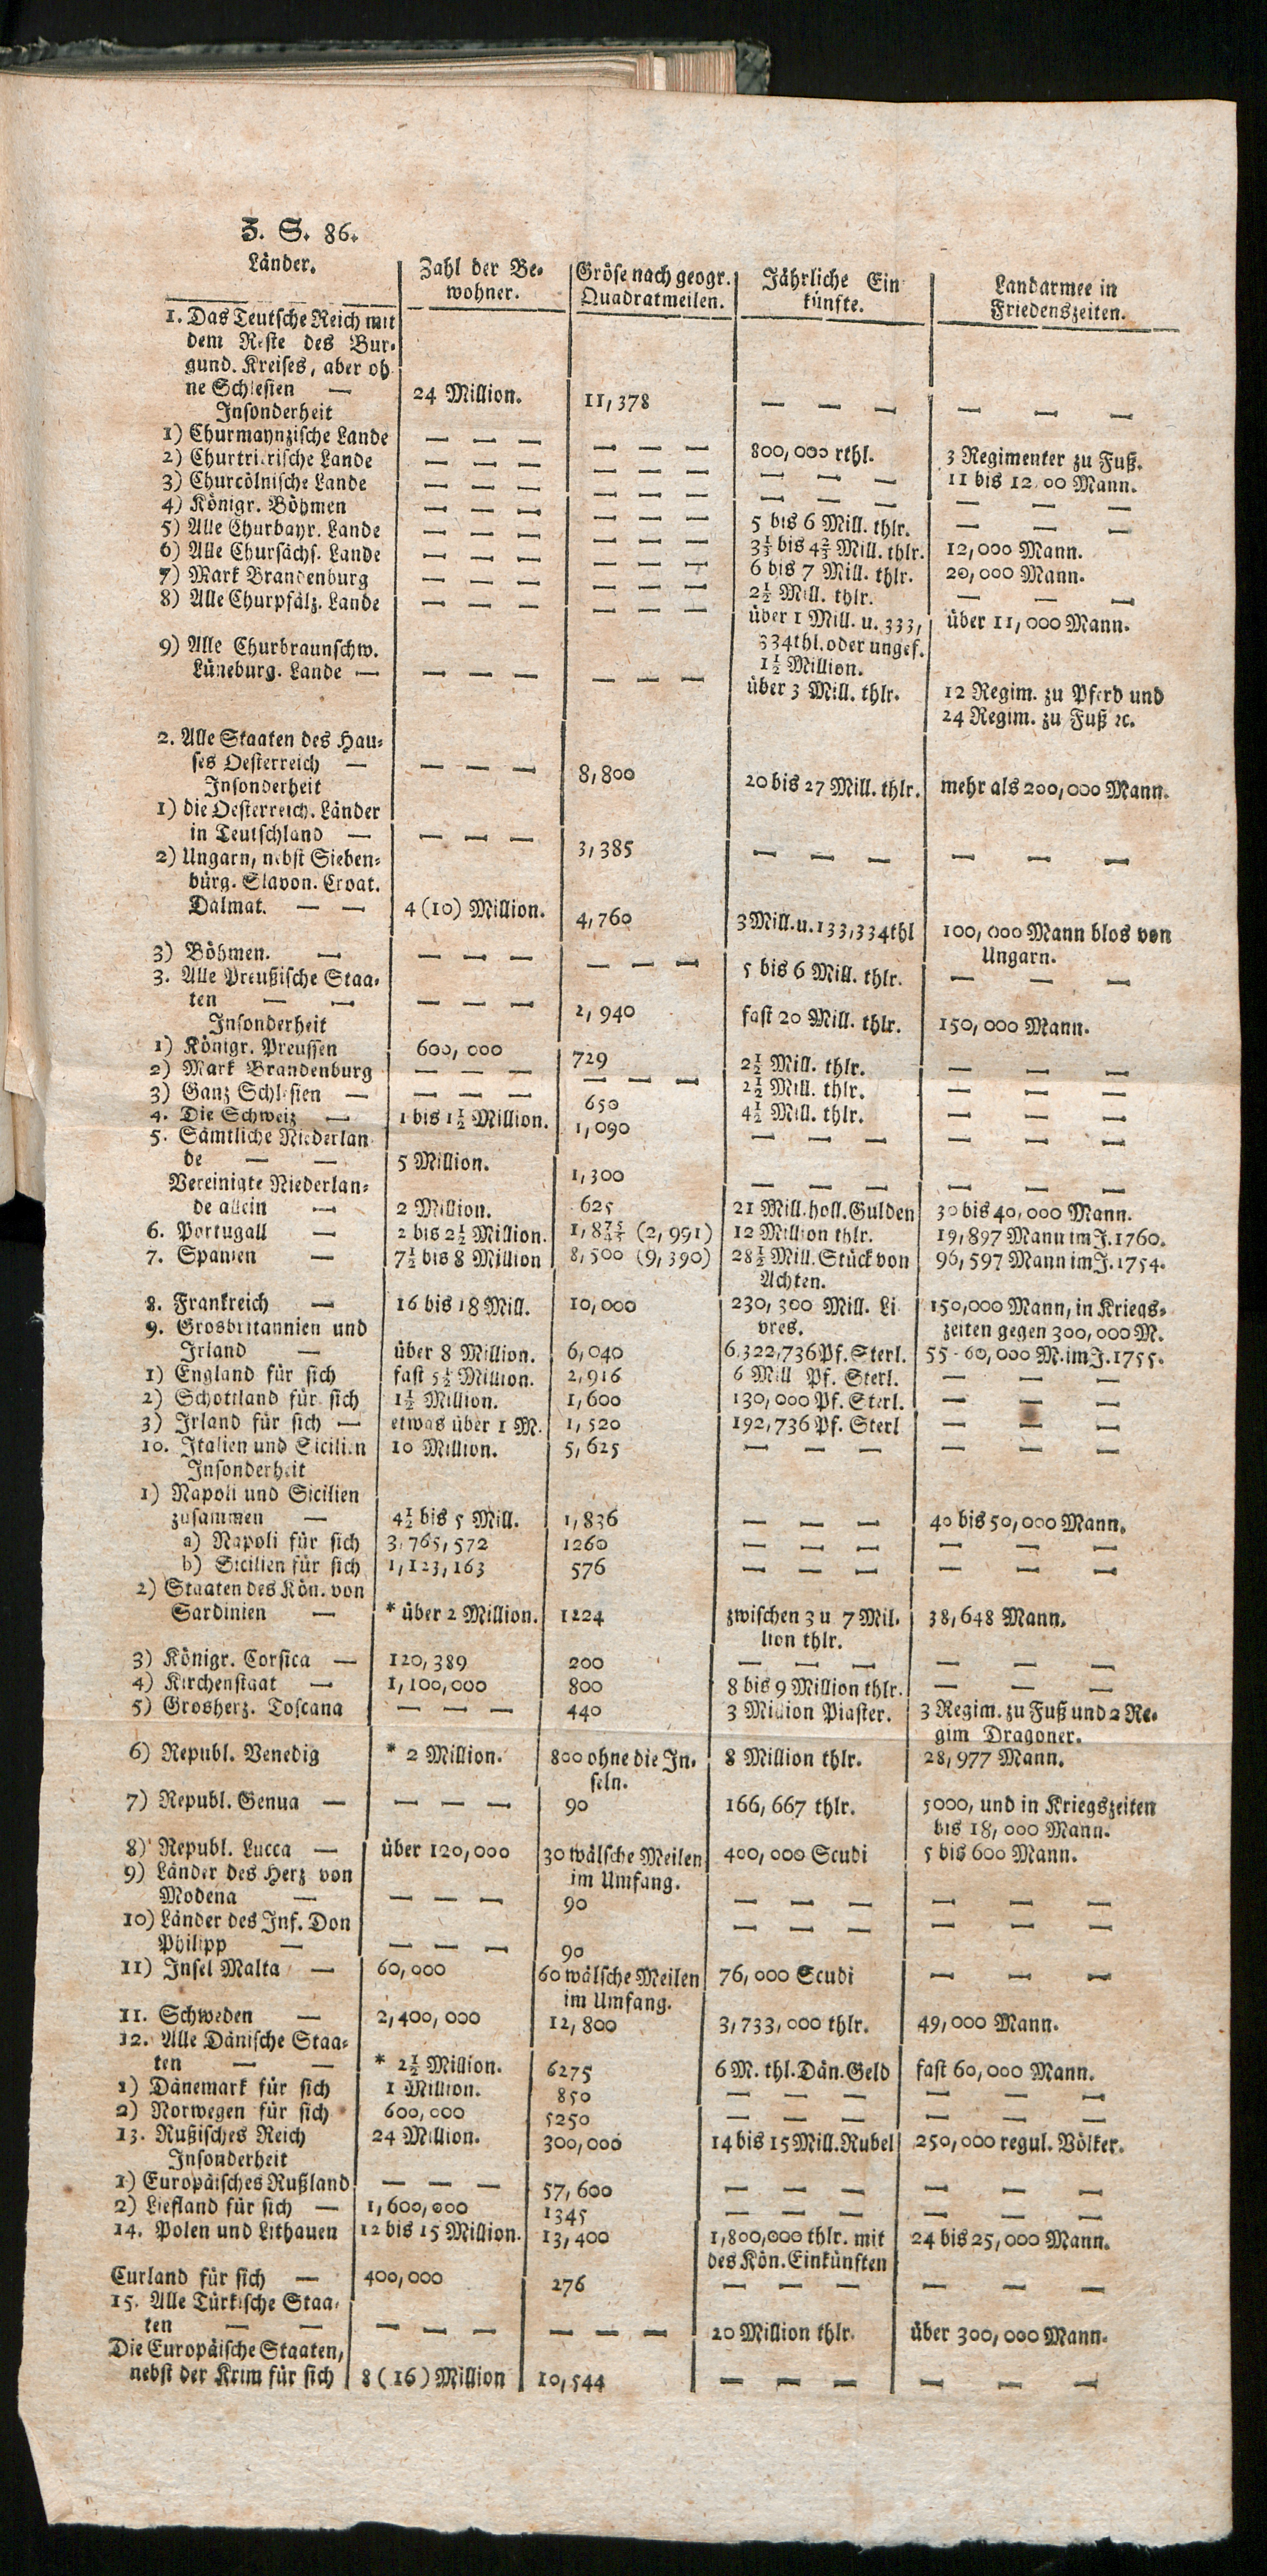 Z. S. 86.
Länder. Zahl der Be- Gröse nach geogr. Jährliche Ein Landarmee in
wohner. Quadratmeilen. künfte. Friedenszeiten.
1. Das Teutsche Reich mit
dem Reste des Bur-
gund. Kreises, aber oh
ne Schlesien — 24 Million. 11,378 — — — — — —
Insonderheit
1) Churmaynzische Lande — — — — — — 800,000 rthl. 3 Regimenter zu Fuß.
2) Churtrierische Lande — — — — — — — — — 11 bis 12 00 Mann.
3) Churcölnische Lande — — — — — — — — — — — —
4) Königr. Böhmen — — — — — — 5 bis 6 Mill. thlr. — — —
5) Alle Churbayr. Lande — — — — — — 3⅓ bis 4⅔ Mill. thlr. 12,000 Mann.
6) Alle Chursächs. Lande — — — — — — 6 bis 7 Mill. thlr. 20,000 Mann.
7) Mark Brandenburg — — — — — — 2½ Mill. thlr. — — —
8) Alle Churpfälz. Lande — — — — — — über 1 Mill. u. 333, über 11,000 Mann.
334thl. oder ungef.
1½ Million.
9) Alle Churbraunschw.
Lüneburg. Lande — — — — — — — über 3 Mill. thlr. 12 Regim. zu Pferd und
24 Regim. zu Fuß ꝛc.
2. Alle Staaten des Hau-
ses Oesterreich — — — — 8,800 20 bis 27 Mill. thlr. mehr als 200,000 Mann.
Insonderheit
1) die Oesterreich. Länder
in Teutschland — — — — 3,385 — — — — — —
2) Ungarn, nebst Sieben-
bürg. Slavon. Croat.
Dalmat. — — 4 (10) Million. 4,760 3 Mill. u. 133,334thl 100,000 Mann blos von
Ungarn.
3) Böhmen. — — — — — — — 5 bis 6 Mill. thlr. — — —
3. Alle Preußische Staa-
ten — — — — — 2,940 fast 20 Mill. thlr. 150,000 Mann.
Insonderheit
1) Königr. Preussen 600,000 729 2½ Mill. thlr. — — —
2) Mark Brandenburg — — — — — — 2½ Mill. thlr. — — —
3) Ganz Schlesien — — — — 650 4½ Mill. thlr. — — —
4. Die Schweiz — 1 bis 1½ Million. 1,090 — — — — — —
5. Sämtliche Niederlan
de — — 5 Million. 1,300 — — — — — —
Vereinigte Niederlan-
de allein — 2 Million. 625 21 Mill. holl. Gulden 30 bis 40,000 Mann.
6. Portugall — 2 bis 2½ Million. (2,991) 12 Million thlr. 19,897 Mann im J. 1760.
7. Spanien — 7½ bis 8 Million 8,500 (9,390) 28½ Mill. Stück von 96,597 Mann im J. 1754.
Achten.
8. Frankreich — 16 bis 18 Mill. 10,000 230,300 Mill. Li 150,000 Mann, in Kriegs-
vres. zeiten gegen 300,000 M.
9. Grosbritannien und
Irland — über 8 Million. 6,040 6,322,736 Pf. Sterl. 55 - 60,000 M. im J. 1755.
1) England für sich fast 5½ Million. 2,916 6 Mill Pf. Sterl. — — —
2) Schottland für sich 1½ Million. 1,600 130,000 Pf. Sterl. — — —
3) Irland für sich — etwas über 1 M. 1,520 192,736 Pf. Sterl — — —
10. Italien und Sicilien 10 Million. 5,625 — — — — — —
Insonderheit
1) Napoli und Sicilien
zusammen — 4½ bis 5 Mill. 1,836 — — — 40 bis 50,000 Mann.
a) Napoli für sich 3,765,572 1260 — — — — — —
b) Sicilien für sich 1,123,163 576 — — — — — —
2) Staaten des Kön. von
Sardinien — * über 2 Million. 1224 zwischen 3 u 7 Mil- 38,648 Mann.
lion thlr.
3) Königr. Corsica — 120,389 200 — — — — — —
4) Kirchenstaat — 1,100,000 800 8 bis 9 Million thlr. — — —
5) Grosherz. Toscana — — — 440 3 Million Piaster. 3 Regim. zu Fuß und 2 Re-
gim Dragoner.
6) Republ. Venedig * 2 Million. 800 ohne die In- 8 Million thlr. 28,977 Mann.
seln.
7) Republ. Genua — — — — 90 166,667 thlr. 5000, und in Kriegszeiten
bis 18,000 Mann.
8) Republ. Lucca — über 120,000 30 wälsche Meilen 400,000 Scudi 5 bis 600 Mann.
im Umfang.
9) Länder des Herz von
Modena — — — — 90 — — — — — —
10) Länder des Inf. Don
Philipp — — — — 90 — — — — — —
11) Insel Malta — 60,000 60 wälsche Meilen 76,000 Scudi — — —
im Umfang.
11. Schweden — 2,400,000 12,800 3,733,000 thlr. 49,000 Mann.
12. Alle Dänische Staa-
ten — — * 2½ Million. 6275 6 M. thl. Dän. Geld fast 60,000 Mann.
1) Dänemark für sich 1 Million. 850 — — — — — —
2) Norwegen für sich 600,000 5250 — — — — — —
13. Rußisches Reich 24 Million. 300,000 14 bis 15 Mill. Rubel 250,000 regul. Völker.
Insonderheit
1) Europäisches Rußland — — — 57,600 — — — — — —
2) Liefland für sich — 1,600,000 1345 — — — — — —
14. Polen und Lithauen 12 bis 15 Million. 13,400 1,800,000 thlr. mit 24 bis 25,000 Mann.
des Kön. Einkünften
Curland für sich — 400,000 276 — — — — — —
15. Alle Türkische Staa-
ten — — — — — — — — 20 Million thlr. über 300,000 Mann.
Die Europäische Staaten,
nebst der Krim für sich 8 (16) Million 10,544 — — — — — —